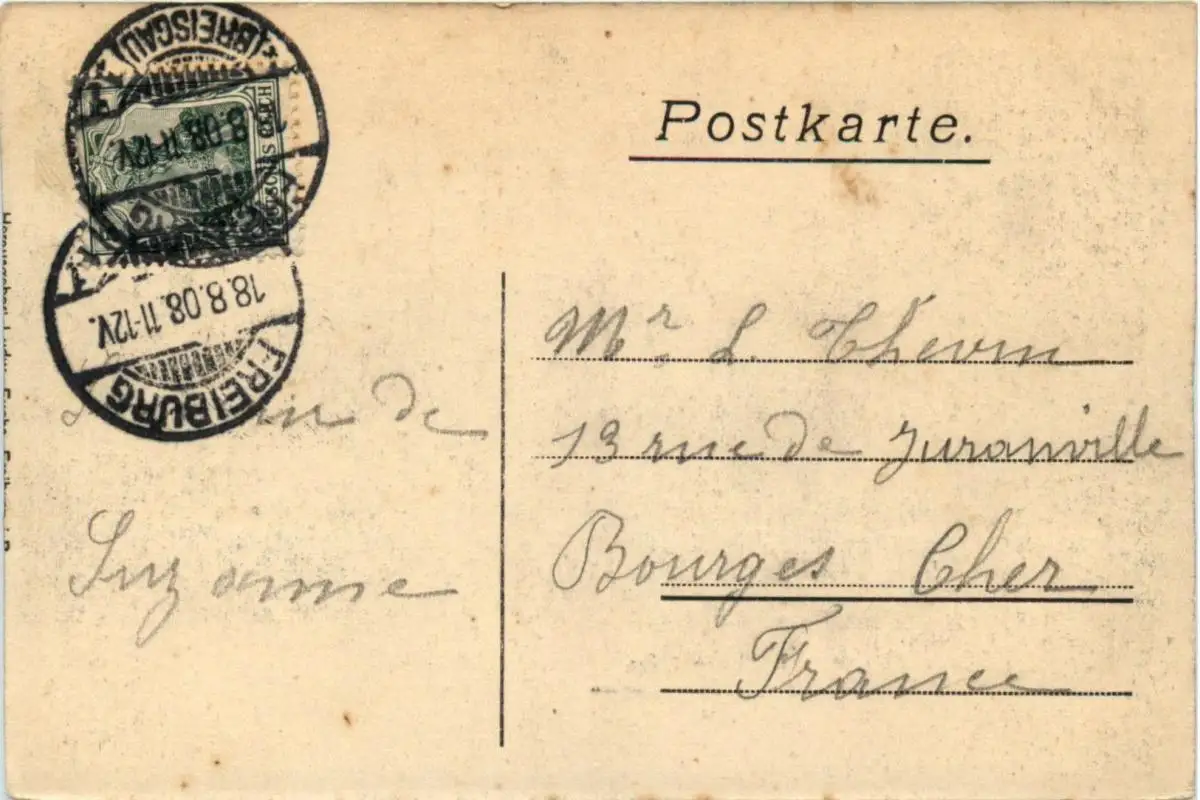 Postkarte.
(BREISGAU)
8.08.11-12V.
DEUTSCHES REICH
18.8.08.11-12V.
FREIBURG
de
Suzanne
Mr. L. Thevin
13 rue de Juranville
Bourges Cher
France